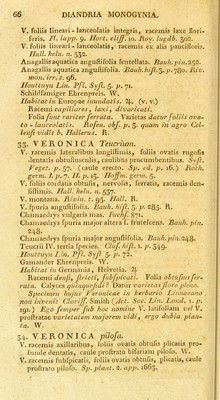 66 DIANDRIA MONOGYNIA.
V. foliis lineari-lanceolatis integris, racemis laxe flori-
feris. Fl. lapp. 9. Hort. cliff. 10. Roy. lugdb. 302.
V. foliis lineari-lanceolatis, racemis ex alis pauciſſoris.
Hall. helv. n. 532.
Anagallis aquatica anguſtifolia ſcutellata. Bauh. pin. 252.
Anagallis aquatica anguſtifolia. Bauh. hiſt. 3. p. 780. Riv.
mon. irr. t. 96.
Houttuyn Lin. Pfl. Syſt. 5. p. 71.
Schildſamiger Ehrenpreis. W.
Habitat in Europae inundatis. ♃. (v. v.)
Racemi capillares, laxi, divaricati.
Folia ſunt rariter ſerrata. Varietas datur foliis ova-
to-lanceolatis. Hoſm. obſ. p. 3. quam in agro Cel-
lenſi vidit b. Hallerus. R.
33. VERONICA Teucrium.
V. racemis lateralibus longiſſimis, foliis ovatis rugoſis
dentatis obtuſiusculis, caulibus procumbentibus. Syſt.
Veget. p. 57. (caule erecto. Sp. ed. p. 16.) Roth.
germ. I. p. 7. II. p. 13. Hoffm. germ. 5.
V. foliis cordatis obtuſis, nervoſis, ferratis, racemis den-
ſiſſimis. Hall. helv. n. 537.
V. montana. Rivin. t. 95. Hall. R.
V. ſpuria anguſtifolia. Bauh. hiſt. 3. p. 285. R.
Chamaedrys vulgaris mas. Fuchſ. 871.
Chamaedrys ſpuria major altera ſ. fruteſcens. Bauh. pin.
248.
Chamaedrys ſpuria major anguſtifolia. Bauh. pin. 248.
Teucrii IV. tertia ſpecies. Cluſ. hiſt. 1. p. 349.
Houttuyn Lin. Pfl. Syſt 5. p. 72.
Gamander Ehrenpreis. W.
Habitat in Germania, Helvetia. ♃
Racemi denſi, ſtricti, ſubſpicati. Folia obtuſius ſer-
rata. Calyces quinquefidi? Datur varietas flore pleno.
Specimen hujus Veronicae in herbario Linnaeano
non invenit Clariſſ. Smith (Act. Soc. Lin. Lond. 1. p.
191.) Ego ſemper ſub hoc nomine V. latifoliam vel V.
proſtratae varietatem majorem vidi, ergo dubia plan-
ta. W.
34. VERONICA piloſa.
V. racemis axillaribus, foliis ovatis obtuſis plicatis pro-
funde dentatis, caule proſtrato bifariam piloſo. W.
V. racemis ſubſpicatis, foliis ovatis obtuſis, plicatis, caule
proſtrato piloſo. Sp. plant. 2. app. 1663.